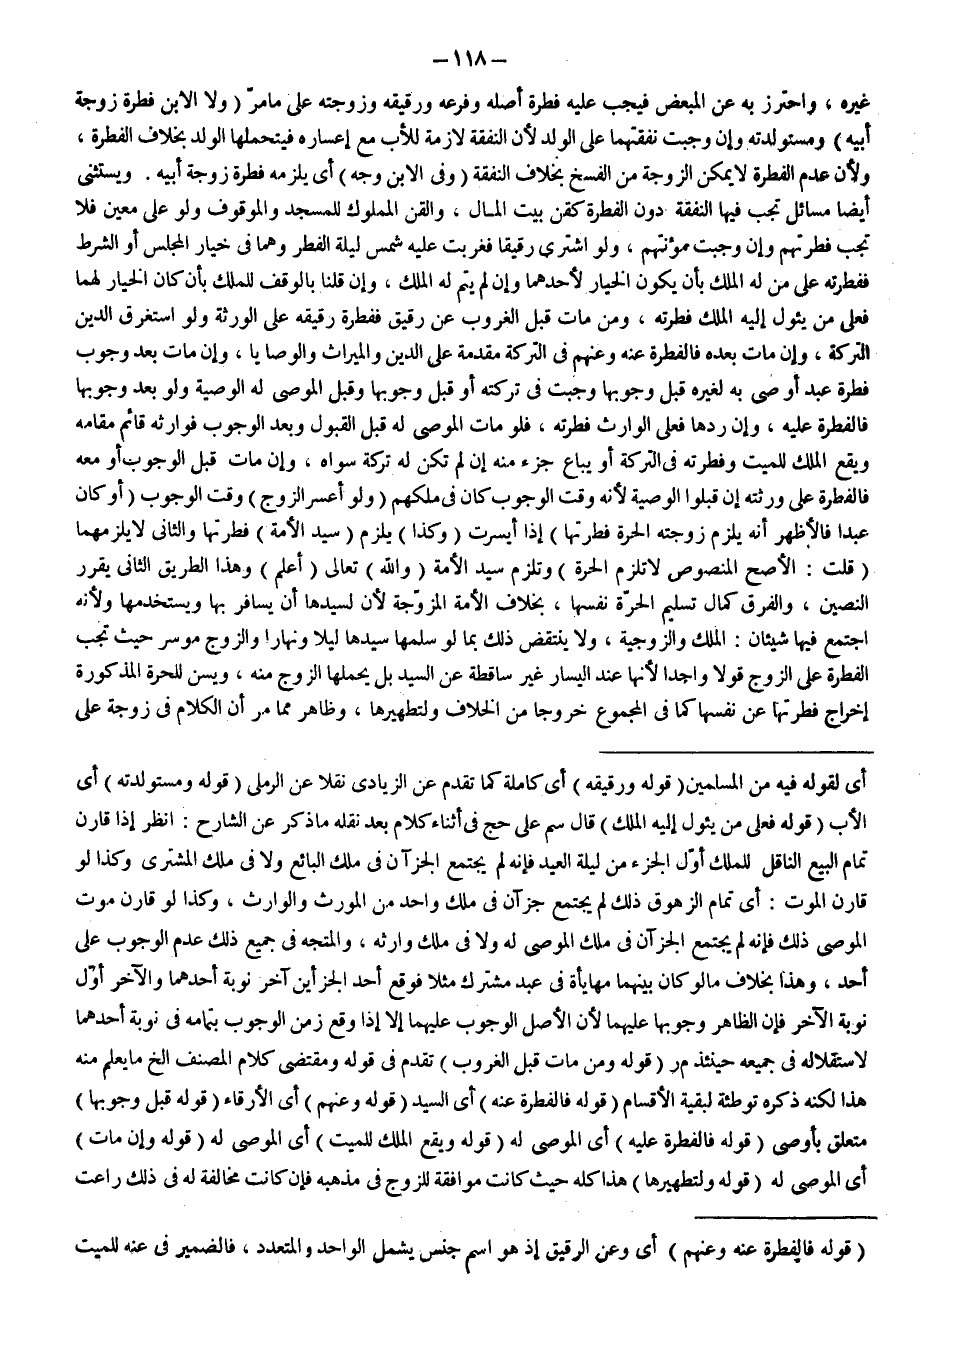 – ١١٨ –
غيره ، واحترز به عن المبعض فيجب عليه فطرة أصله وفرعه ورقيقه وزوجته على مامرّ ( ولا الابن فطرة زوجة
أبيه ) ومستولدته وإن وجبت نفقتهما على الولد لأن النفقة لازمة للأب مع إعساره فيتحملها الولد بخلاف الفطرة ،
ولأن عدم الفطرة لايمكن الزوجة من الفسخ بخلاف النفقة ( وفى الابن وجه ) أى يلزمه فطرة زوجة أبيه . ويستثنى
أيضا مسائل تجب فيها النفقة دون الفطرة كقن بيت المال ، والقن المملوك للمسجد والموقوف ولو على معين فلا
تجب فطرتهم وإن وجبت مؤنتهم ، ولو اشترى رقيقا فغربت عليه شمس ليلة الفطر وهما فى خيار المجلس أو الشرط
ففطرته على من له الملك بأن يكون الخيار لأحدهما وإن لم يتم له الملك ، وإن قلنا بالوقف للملك بأن كان الخيار لهما
فعلى من يئول إليه الملك فطرته ، ومن مات قبل الغروب عن رقيق ففطرة رقيقه على الورثة ولو استغرق الدين
التركة ، وإن مات بعده فالفطرة عنه وعنهم فى التركة مقدمة على الدين والميراث والوصايا ، وإن مات بعد وجوب
فطرة عبد أوصى به لغيره قبل وجوبها وجبت فى تركته أو قبل وجوبها وقبل الموصى له الوصية ولو بعد وجوبها
فالفطرة عليه ، وإن ردها فعلى الوارث فطرته ، فلو مات الموصى له قبل القبول وبعد الوجوب فوارثه قائم مقامه
ويقع الملك للميت وفطرته فى التركة أو يباع جزء منه إن لم تكن له تركة سواه ، وإن مات قبل الوجوب أو معه
فالفطرة على ورثته إن قبلوا الوصية لأنه وقت الوجوب كان فى ملكهم ( ولو أعسر الزوج ) وقت الوجوب ( أو كان
عبدا فالأظهر أنه يلزم زوجته الحرة فطرتها ) إذا أيسرت ( وكذا ) يلزم ( سيد الأمة ) فطرتها والثانى لايلزمهما
( قلت : الأصح المنصوص لاتلزم الحرة ) وتلزم سيد الأمة ( والله ) تعالى ( أعلم ) وهذا الطريق الثانى يقرر
النصين ، والفرق كمال تسليم الحرّة نفسها ، بخلاف الأمة المزوّجة لأن لسيدها أن يسافر بها ويستخدمها ولأنه
اجتمع فيها شيئان : الملك والزوجية ، ولا ينتقض ذلك بما لو سلمها سيدها ليلا ونهارا والزوج موسر حيث تجب
الفطرة على الزوج قولا واحدا لأنها عند اليسار غير ساقطة عن السيد بل يحملها الزوج منه ، ويسن للحرة المذكورة
إخراج فطرتها عن نفسها كما فى المجموع خروجا من الخلاف ولتطهيرها ، وظاهر مما مر أن الكلام فى زوجة على
أى لقوله فيه من المسلمين ( قوله ورقيقه ) أى كاملة كما تقدم عن الزيادى نقلا عن الرملى ( قوله ومستولدته ) أى
الأب ( قوله فعلى من يئول إليه الملك ) قال سم على حج فى أثناء كلام بعد نقله ماذكر عن الشارح : انظر إذا قارن
تمام البيع الناقل للملك أوّل الجزء من ليلة العيد فإنه لم يجتمع الجزآن فى ملك البائع ولا فى ملك المشترى وكذا لو
قارن الموت : أى تمام الزهوق ذلك لم يجتمع جزآن فى ملك واحد من المورث والوارث ، وكذا لو قارن موت
الموصى ذلك فإنه لم يجتمع الجزآن فى ملك الموصى له ولا فى ملك وارثه ، والمتجه فى جميع ذلك عدم الوجوب على
أحد ، وهذا بخلاف مالو كان بينهما مهايأة فى عبد مشترك مثلا فوقع أحد الجزأين آخر نوبة أحدهما والآخر أوّل
نوبة الآخر فإن الظاهر وجوبها عليهما لأن الأصل الوجوب عليهما إلا إذا وقع زمن الوجوب بتمامه فى نوبة أحدهما
لاستقلاله فى جميعه حينئذ مر ( قوله ومن مات قبل الغروب ) تقدم فى قوله ومقتضى كلام المصنف الخ مايعلم منه
هذا لكنه ذكره توطئة لبقية الأقسام ( قوله فالفطرة عنه ) أى السيد ( قوله وعنهم ) أى الأرقاء ( قوله قبل وجوبها )
متعلق بأوصى ( قوله فالفطرة عليه ) أى الموصى له ( قوله ويقع الملك للميت ) أى الموصى له ( قوله وإن مات )
أى الموصى له ( قوله ولتطهيرها ) هذا كله حيث كانت موافقة للزوج فى مذهبه فإن كانت مخالفة له فى ذلك راعت
( قوله فالفطرة عنه وعنهم ) أى وعن الرقيق إذ هو اسم جنس يشمل الواحد والمتعدد ، فالضمير فى عنه للميت